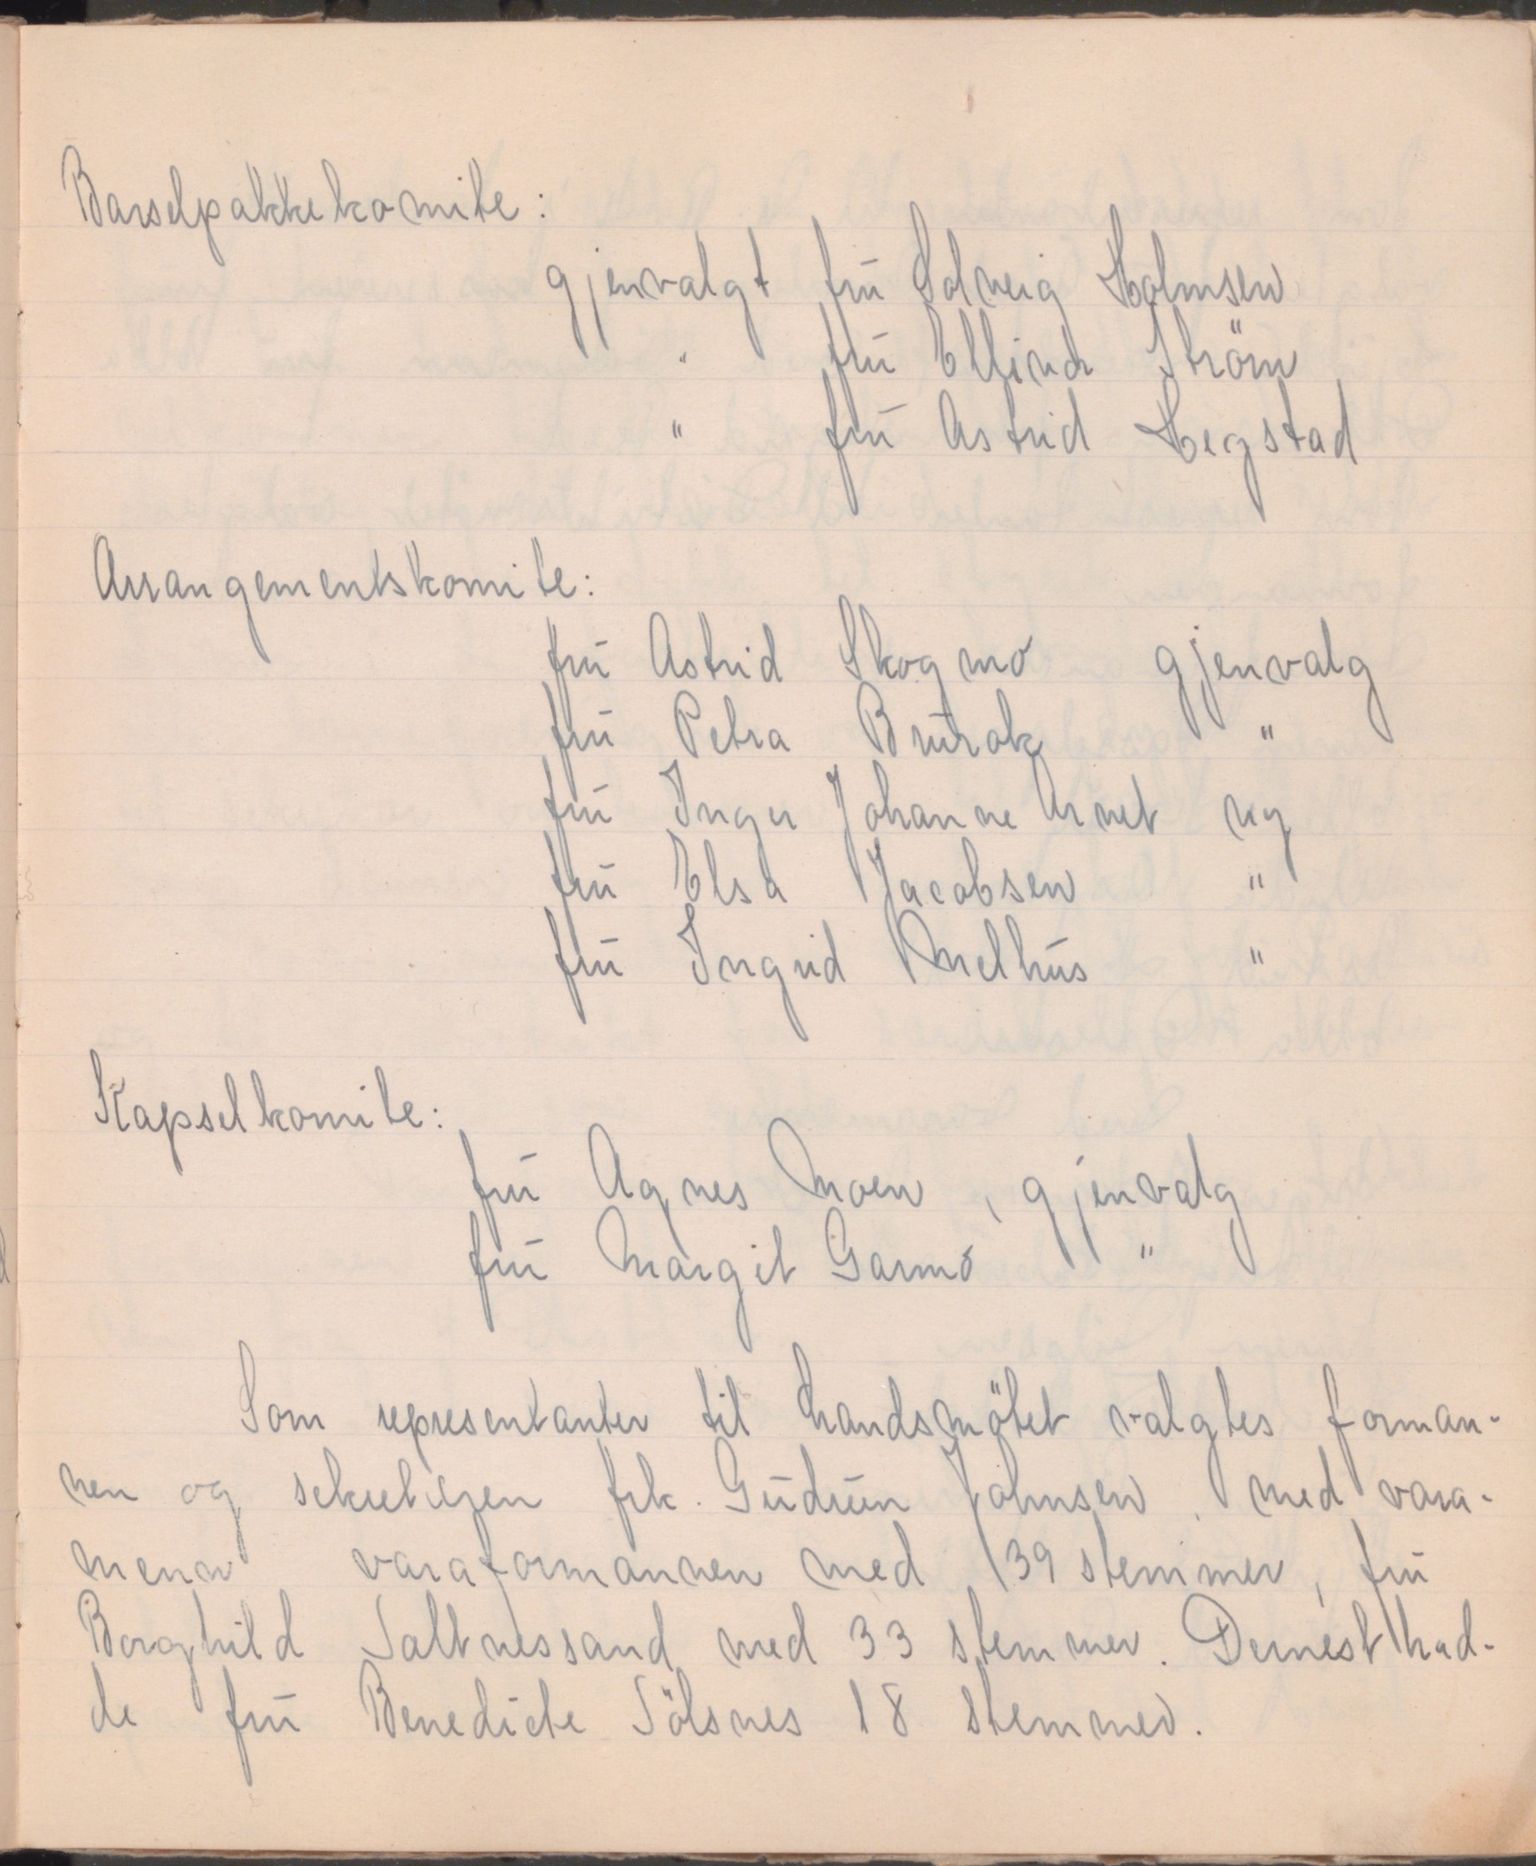 Barselpakkekomite:
gjenvalgt frū Solveig Holmsen
" frū Ellinor Ström
" frū Astrid Hegstad
Arrangementskomite:
frū Astrid Skogmo gjenvalg
frū Petra Būrok "
frū Inger Johanne Arnet ny
frū Elsa Jacobsen "
frū Ingrid Melhūs "
Kapselkomite:
frū Agnes Moen, gjenvalg
frū Margit Garmo "
Som representanter til landsmötet valgtes forman-
nen og sekretæren frk. Gūdrūn Johnsen, med vara-
menn varaformannen med 39 stemmer, frū
Borghild Saltnessand med 33 stemmer. Dernest had-
de frū Benedicte Sölsnes 18 stemmer.